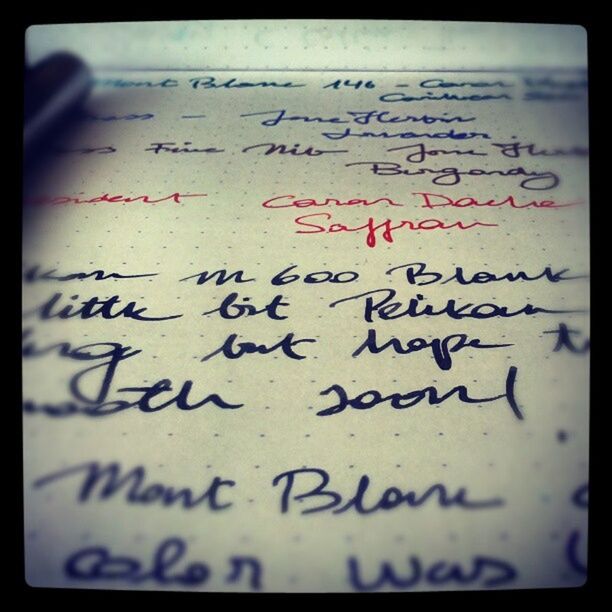 Mont Blanc 146 - Caran
- Jone Herbin
Lavander
Fine Nib Jone
Burgandy
Caran Dache
Saffran
m 600 Blank
little bit Pelikan
but hope
soon!
Mont Blanc
color was